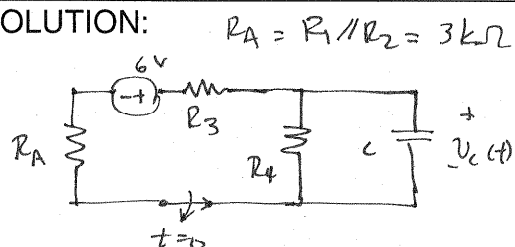 OLUTION: RA = R1 // R2 = 3 kΩ
6 V
- +
R3
RA
R4
C
+
- Vc (t)
t = 0